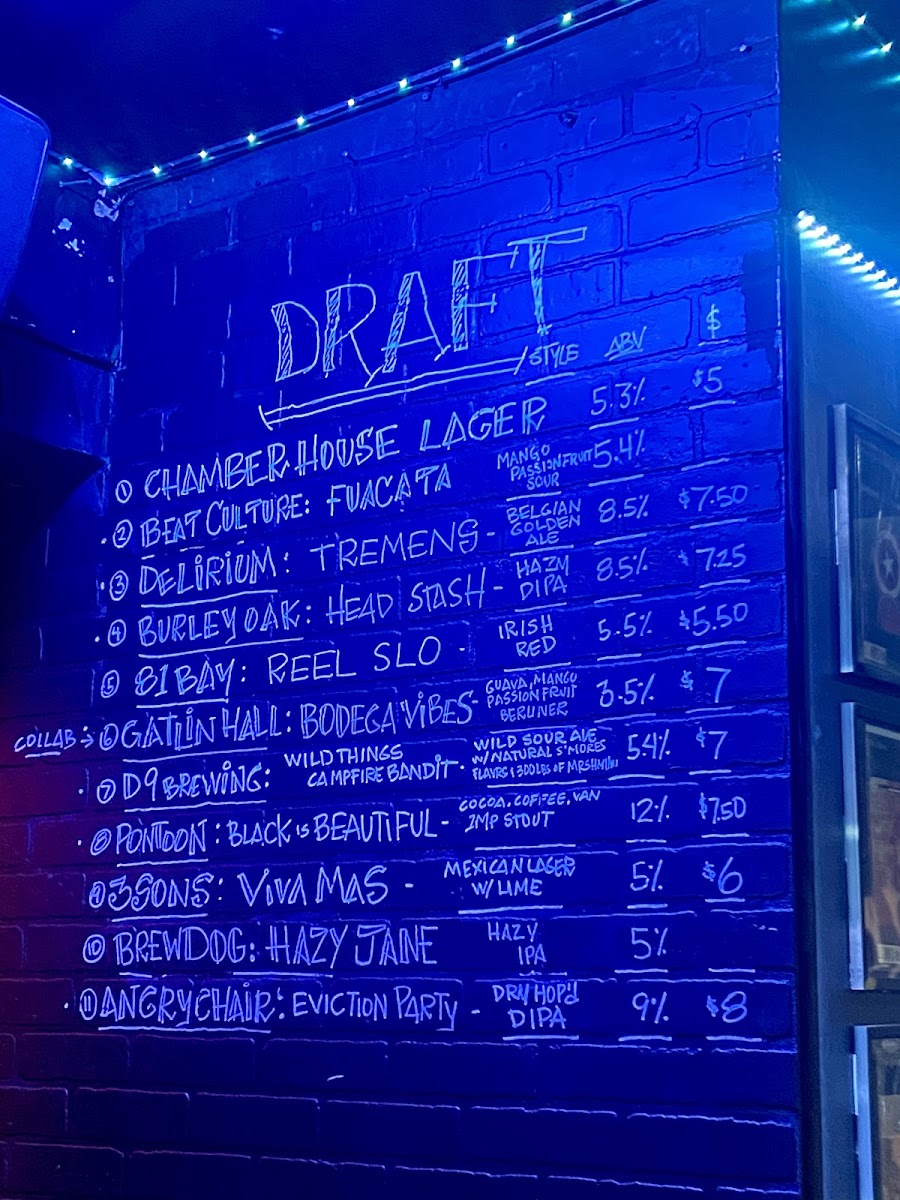 DRAFT
STYLE ABV $
① CHAMBER HOUSE LAGER 5.3% $5
② BEAT CULTURE: FUACATA MANGO PASSIONFRUIT SOUR 5.4%
③ DELIRIUM: TREMENS - BELGIAN GOLDEN ALE 8.5% $7.50
④ BURLEY OAK: HEAD STASH - HAZY DIPA 8.5% $7.25
⑤ 81BAY: REEL SLO - IRISH RED 5.5% $5.50
COLLAB → ⑥ GATLIN HALL: BODEGA VIBES - GUAVA, MANGO PASSIONFRUIT BERLINER 3.5% $7
⑦ D9 BREWING: WILD THINGS CAMPFIRE BANDIT - WILD SOUR ALE W/ NATURAL S'MORES FLAVRS & 300LBS OF 5.4% $7
⑧ PONTOON: BLACK IS BEAUTIFUL - COCOA, COFFEE, VAN IMP STOUT 12% $7.50
⑨ 3SONS: VIVA MAS - MEXICAN LAGER W/ LIME 5% $6
⑩ BREWDOG: HAZY JANE HAZY IPA 5%
⑪ ANGRY CHAIR: EVICTION PARTY - DRY HOP'D DIPA 9% $8